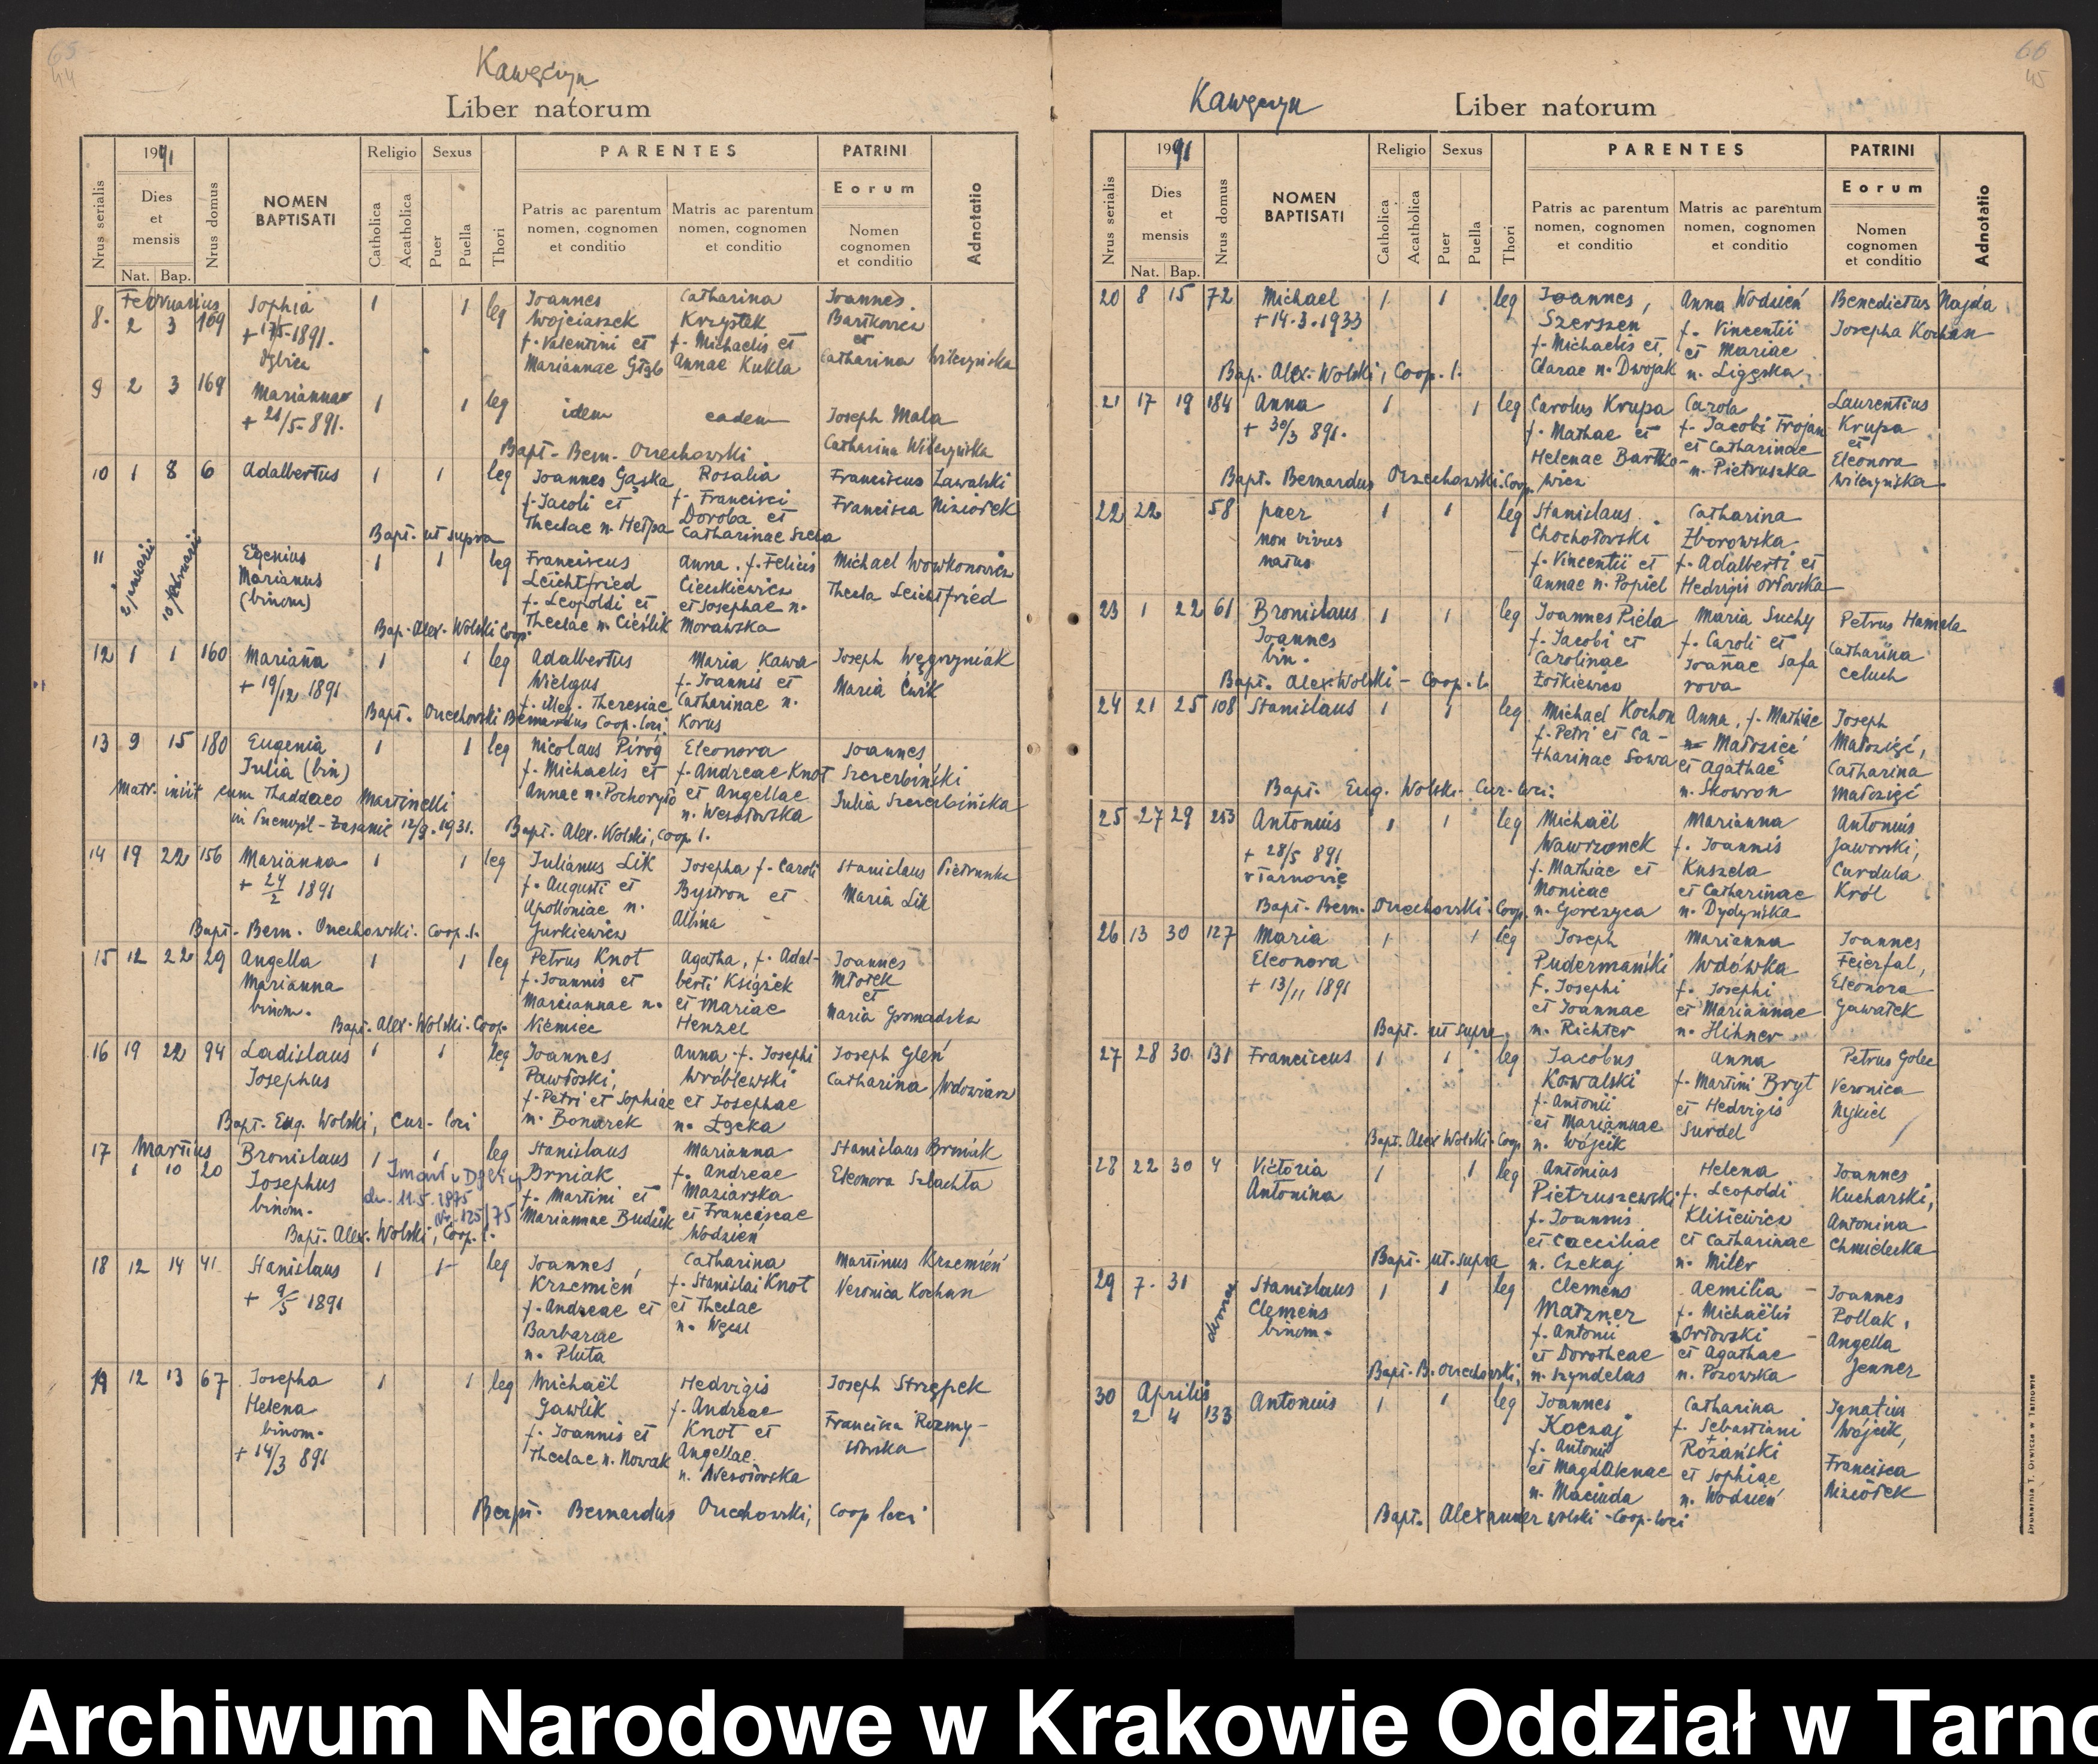 65
44
Kawęczyn
Liber natorum
Nrus serialis
1991
Dies et mensis
Nat. Bap.
Nrus domus
NOMEN BAPTISATI
Religio
Catholica
Acatholica
Sexus
Puer
Puella
Thori
PARENTES
Patris ac parentum nomen, cognomen et conditio
Matris ac parentum nomen, cognomen et conditio
PATRINI
Eorum
Nomen cognomen et conditio
Adnotatio
Februarius
8. 2 3 169 Sophia 1 1 leg Joannes Catharina Joannes
+ 17/5-1891. Wojciaszek Krzystek Bartkowicz
f. Valentini et f. Michaelis et et
Mariannae Głąb Annae Kukla Catharina Wilczyńska
9 2 3 169 Marianna 1 1 leg idem eadem Joseph Mala
+ 21/5-891. Catharina Wilczyńska
Bapt. Bern. Orzechowski
10 1 8 6 Adalbertus 1 1 leg Joannes Gąska Rosalia Franciscus Zawalski
f. Jacobi et f. Francisci Francisca Niziołek
Theclae n. Hełpa Doroba et
Bapt. ut supra Catharinae Szela
11 2 januarii 10 februarii Eugenius 1 1 leg Franciscus Anna f. Felicis Michael Wowkonowicz
Marianus Leichtfried Cieckiewicz Thecla Leichtfried
(binom) f. Leopoldi et et Josephae n.
Bap. Alex. Wolski Coop. Theclae n. Cieślik Morawska
12 1 1 160 Marianna 1 1 leg Adalbertus Maria Kawa Joseph Węgrzyniak
+ 19/12 1891 Wielgus f. Joannis et Maria Ćwik
f. illeg. Theresiae Catharinae n.
Bapt. Orzechowski Bernardus Coop. loci Korus
13 9 15 180 Eugenia 1 1 leg Nicolaus Piróg Eleonora Joannes
Julia (bin) f. Michaelis et f. Andreae Knot Szczerbiński
Matr. iniit cum Thaddaeo Martinelli Annae n. Pochoryło et Angellae Julia Szczerbińska
in Przemyśl-Zasanie 12/9. 1931. n. Wesołowska
Bapt. Alex. Wolski, Coop. l.
14 19 22 156 Marianna 1 1 leg Julianus Lik Josepha f. Caroli Stanislaus Pietruszka
+ 24/2 1891 f. Augusti et Bystron et Maria Lik
Apolloniae n. Albina
Bapt. Bern. Orzechowski. Coop. l. Jurkiewicz
15 12 22 29 Angella 1 1 leg Petrus Knot Agatha, f. Adal- Joannes
Marianna f. Joannis et berti Książek Młotek
binom. Mariannae n. et Mariae et
Bapt. Alex. Wolski. Coop. Niemiec Henzel Maria Gromadzka
16 19 22 94 Ladislaus 1 1 leg Joannes Anna f. Josephi Joseph Gleń
Josephus Pawłoski, Wróblewski Catharina Wdowiarz
f. Petri et Sophiae et Josephae
Bapt. Eug. Wolski, Cur. loci n. Bonarek n. Łącka
Martius
17 1 10 20 Bronislaus 1 1 leg Stanislaus Marianna Stanislaus Brzniak
Josephus Brzniak f. Andreae Eleonora Szlachta
binom. f. Martini et Maziarska
Zmarł w Dębicy dn. 11.5.1975 Nr. 125/75 Mariannae Budzik et Franciscae
Bapt. Alex. Wolski, Coop. l. Wodzień
18 12 14 41 Stanislaus 1 1 leg Joannes Catharina Martinus Krzemień
+ 9/5 1891 Krzemień f. Stanislai Knot Veronica Kochan
f. Andreae et et Theclae
Barbarae
n. Pluta
19 12 13 67 Josepha 1 1 leg Michaël Hedvigis Joseph Strzępek
Helena Gawlik f. Andreae Francisca Rozmy-
binom. f. Joannis et Knot et słowska
+ 14/3 891 Theclae n. Nowak Angellae
n. Wesołowska
Bapt. Bernardus Orzechowski, Coop loci
66
45
Kawęczyn
Liber natorum
Nrus serialis
1991
Dies et mensis
Nat. Bap.
Nrus domus
NOMEN BAPTISATI
Religio
Catholica
Acatholica
Sexus
Puer
Puella
Thori
PARENTES
Patris ac parentum nomen, cognomen et conditio
Matris ac parentum nomen, cognomen et conditio
PATRINI
Eorum
Nomen cognomen et conditio
Adnotatio
20 8 15 72 Michael 1 1 leg Joannes, Anna Wodzień Benedictus Najda
+ 14.3.1933 Szerszen f. Vincentii Josepha Kochan
f. Michaelis et, et Mariae
Bap. Alex. Wolski, Coop. l. Clarae n. Dwojak n. Ligęska
21 17 19 184 Anna 1 1 leg Carolus Krupa Carola Laurentius
+ 30/3 891. f. Mathae et f. Jacobi Trojan Krupa
Helenae Bartko- et Catharinae et
wicz n. Pietruszka Eleonora
Bapt. Bernardus Orzechowski. Coop. Wilczyńska
22 22 58 puer 1 1 leg Stanislaus Catharina
non vivus Chochołowski Zborowska
natus f. Vincentii et f. Adalberti et
Annae n. Popiel Hedvigis Orłowska
23 1 22 61 Bronislaus 1 1 leg Joannes Piela Maria Suchy Petrus Hamala
Joannes f. Jacobi et f. Caroli et Catharina
bin. Carolinae Joannae Safa Celuch
Bapt. Alex. Wolski - Coop. l. Żołkiewicz rova
24 21 25 108 Stanislaus 1 1 leg Michael Kochon Anna, f. Mathiae Joseph
f. Petri et Ca- Małozięć Małozięć,
tharinae Sowa et Agathae Catharina
Bapt. Eug. Wolski - Cur. loci n. Skowron Małozięć
25 27 29 253 Antonius 1 1 leg Michaël Marianna Antonius
+ 28/5 891 Wawrzonek f. Joannis Jaworski,
w Tarnowie f. Mathiae et Kuszela Curdula
Monicae et Catharinae Król
Bapt. Bern. Orzechowski. Coop. n. Gorczyca n. Dydyńska
26 13 30 127 Maria 1 1 leg Joseph Marianna Joannes
Eleonora Pudermański Wdówka Feierfal,
+ 13/11 1891 f. Josephi f. Josephi Eleonora
et Joannae et Mariannae Gawałek
Bapt. ut supra n. Richter n. Hihner
27 28 30 131 Franciscus 1 1 leg Jacobus Anna Petrus Golec
Kowalski f. Martini Bryt Veronica
f. Antonii et Hedvigis Nykiel
et Mariannae Surdel
Bapt. Alex Wolski. Coop n. Wójcik
28 22 30 4 Victoria 1 1 leg Antonius Helena Joannes
Antonina Pietruszewski f. Leopoldi Kucharski,
f. Joannis Klisiewicz Antonina
et Caeciliae et Catharinae Chmielecka
Bapt. ut supra n. Czekaj n. Miler
29 7. 31 Stanislaus 1 1 leg Clemens Aemilia Joannes
Clemens Matzner f. Michaëlis Pollak,
binom. f. Antonii Orłowski Angella
et Dorotheae et Agathae Jenner
Bapt. B. Orzechowski, n. Szyndelas n. Pozowska
Aprilis
30 2 4 133 Antonius 1 1 leg Joannes Catharina Ignatius
Koczaj f. Sebastiani Wójcik,
f. Antonii Różański Francisca
et Magdalenae et Sophiae Niziołek
n. Maciuda n. Wodzień
Bapt. Alexander Wolski - Coop. loci
Drukarnia T. Orwicza w Tarnowie
Archiwum Narodowe w Krakowie Oddział w Tarno